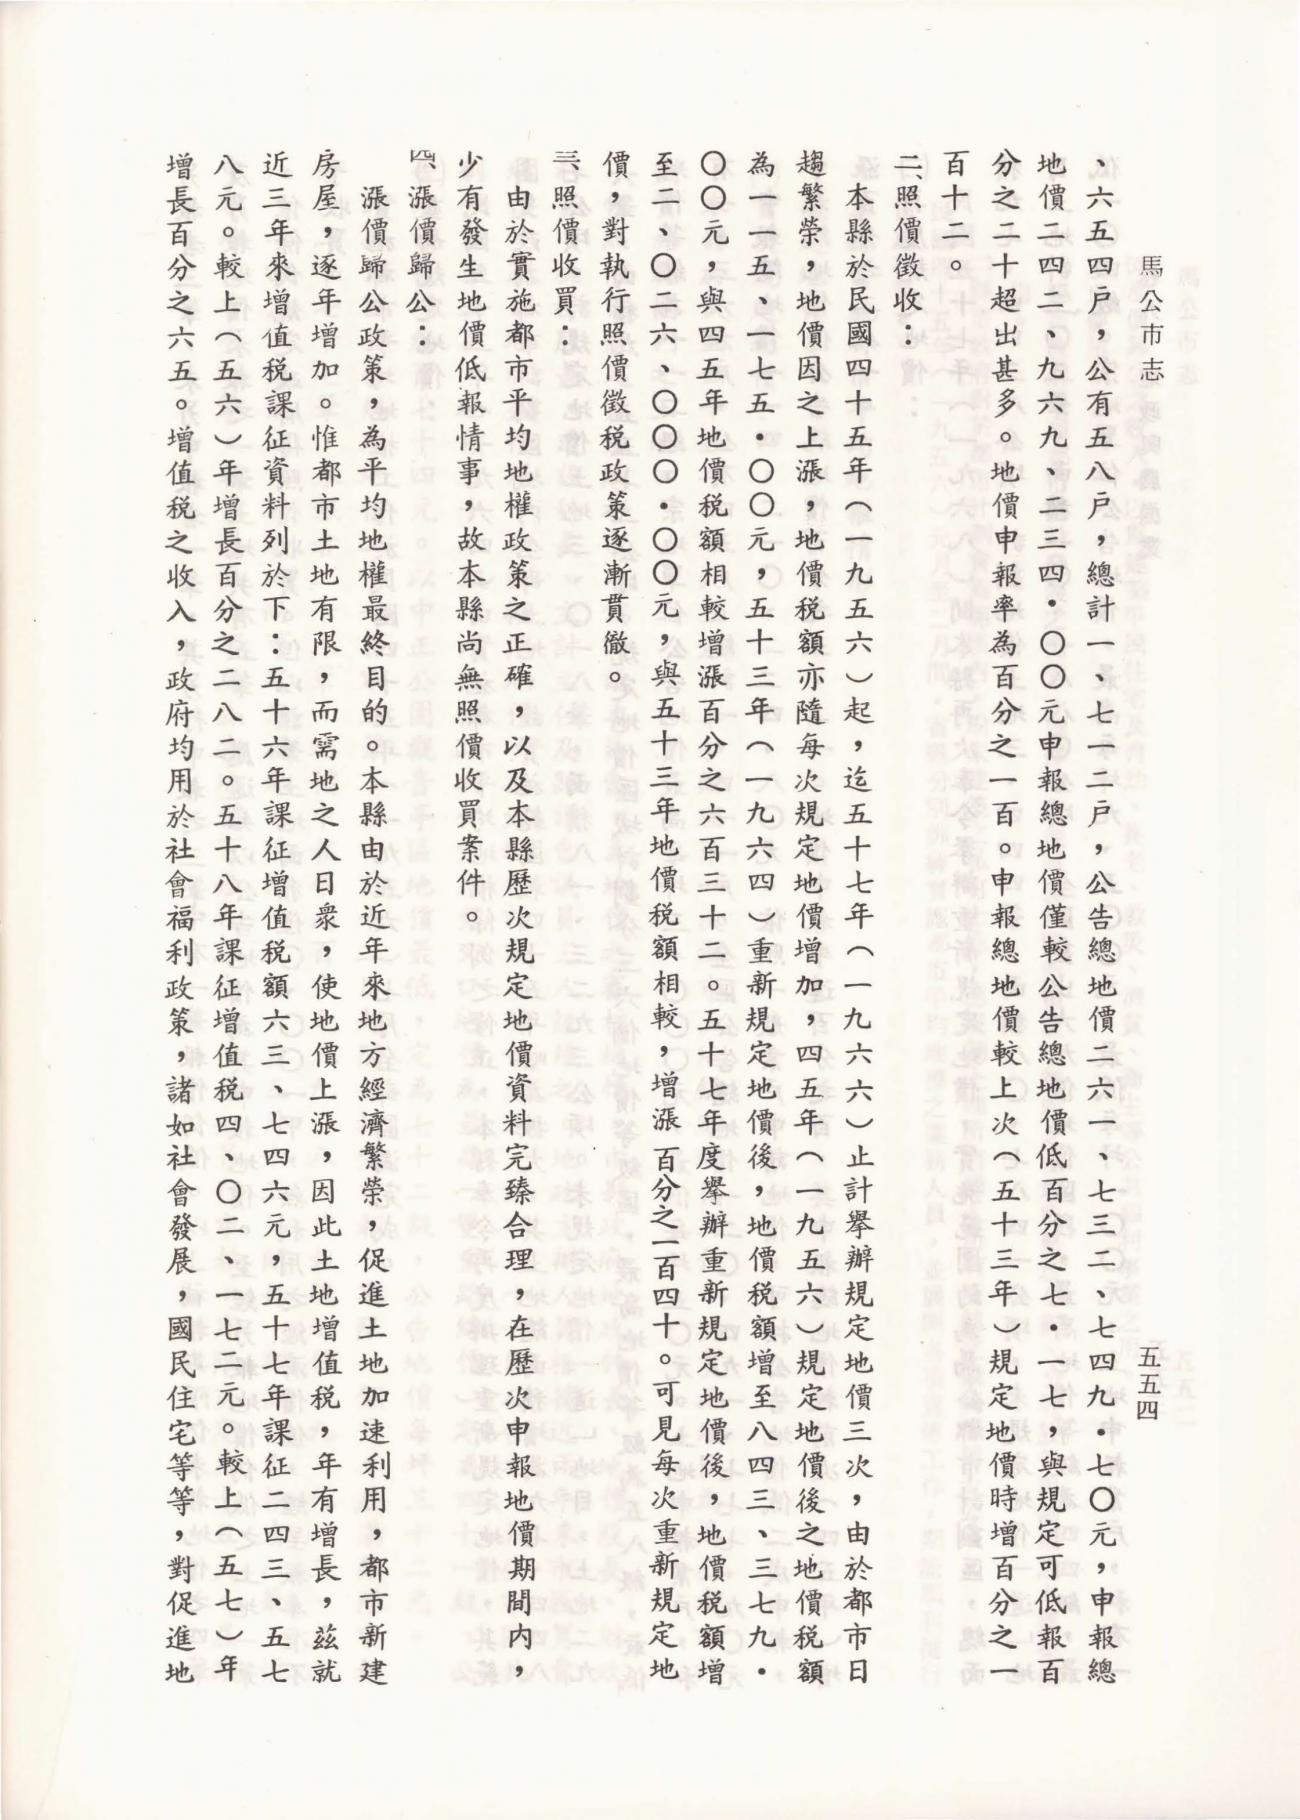 馬公市志
五五四
、六五四戶，公有五八戶，總計一、七一二戶，公告總地價二六一、七三二、七四九．七〇元，申報總
地價二四二、九六九、二三四．〇〇元申報總地價僅較公告總地價低百分之七．一七，與規定可低報百
分之二十超出甚多。地價申報率為百分之一百。申報總地價較上次（五十三年）規定地價時增百分之一
百十二。
二、照價徵收：
本縣於民國四十五年（一九五六）起，迄五十七年（一九六六）止計舉辦規定地價三次，由於都市日
趨繁榮，地價因之上漲，地價稅額亦隨每次規定地價增加，四五年（一九五六）規定地價後之地價稅額
為一一五、一七五．〇〇元，五十三年（一九六四）重新規定地價後，地價稅額增至八四三、三七九．
〇〇元，與四五年地價稅額相較增漲百分之六百三十二。五十七年度舉辦重新規定地價後，地價稅額增
至二、〇二六、〇〇〇．〇〇元，與五十三年地價稅額相較，增漲百分之一百四十。可見每次重新規定地
價，對執行照價徵稅政策逐漸貫徹。
三、照價收買：
由於實施都市平均地權政策之正確，以及本縣歷次規定地價資料完臻合理，在歷次申報地價期間內，
少有發生地價低報情事，故本縣尚無照價收買案件。
四、漲價歸公：
漲價歸公政策，為平均地權最終目的。本縣由於近年來地方經濟繁榮，促進土地加速利用，都市新建
房屋，逐年增加。惟都市土地有限，而需地之人日衆，使地價上漲，因此土地增值稅，年有增長，茲就
近三年來增值稅課征資料列於下：五十六年課征增值稅額六三、七四六元，五十七年課征二四三、五七
八元。較上（五六）年增長百分之二八二。五十八年課征增值稅四、〇二、一七二元。較上（五七）年
增長百分之六五。增值稅之收入，政府均用於社會福利政策，諸如社會發展，國民住宅等等，對促進地